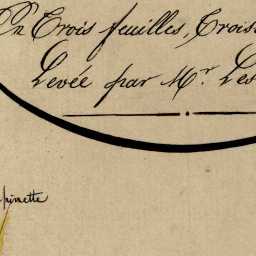 En Trois feuilles, Trois
Levée par Mr. Les